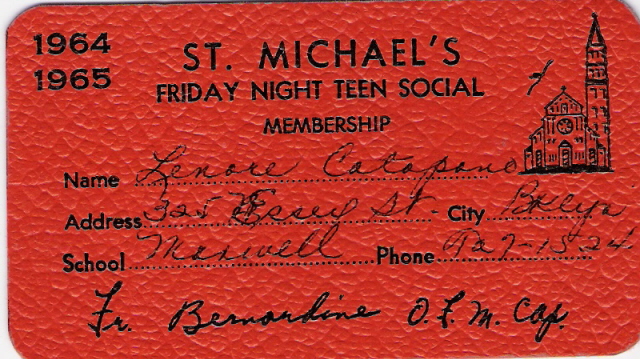 1964 ST. MICHAEL'S
1965 FRIDAY NIGHT TEEN SOCIAL
MEMBERSHIP
Name Lenore Catapano
Address 325 Essex St. City Bklyn
School Maxwell Phone 927-1524
Fr. Bernardine O.F.M. Cap.